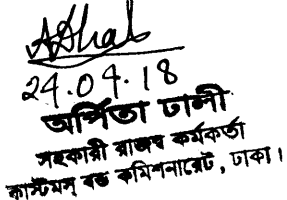 24.04.18
অর্পিতা ঢালী
সহকারী রাজস্ব কর্মকর্তা
কাস্টমস্ বন্ড কমিশনারেট, ঢাকা।